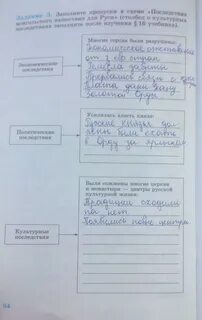 Задание 3. Заполните пропуски в схеме «Последствия
монгольского нашествия для Руси» (столбец о культурных
последствиях заполните после изучения § 18 учебника).
Многие города были разрушены.
Экономическое отставание
от з. евр. стран
Земли
Прервались связи с
Платили дань
Золотой Орде
Экономические
последствия
Усилилась власть князя.
Русские князья дол-
жны были ехать
в орду за ярлыком
Политические
последствия
Были сожжены многие церкви
и монастыри — центры русской
культурной жизни.
Традиции сходили
на нет.
Появились новые
Культурные
последствия
64